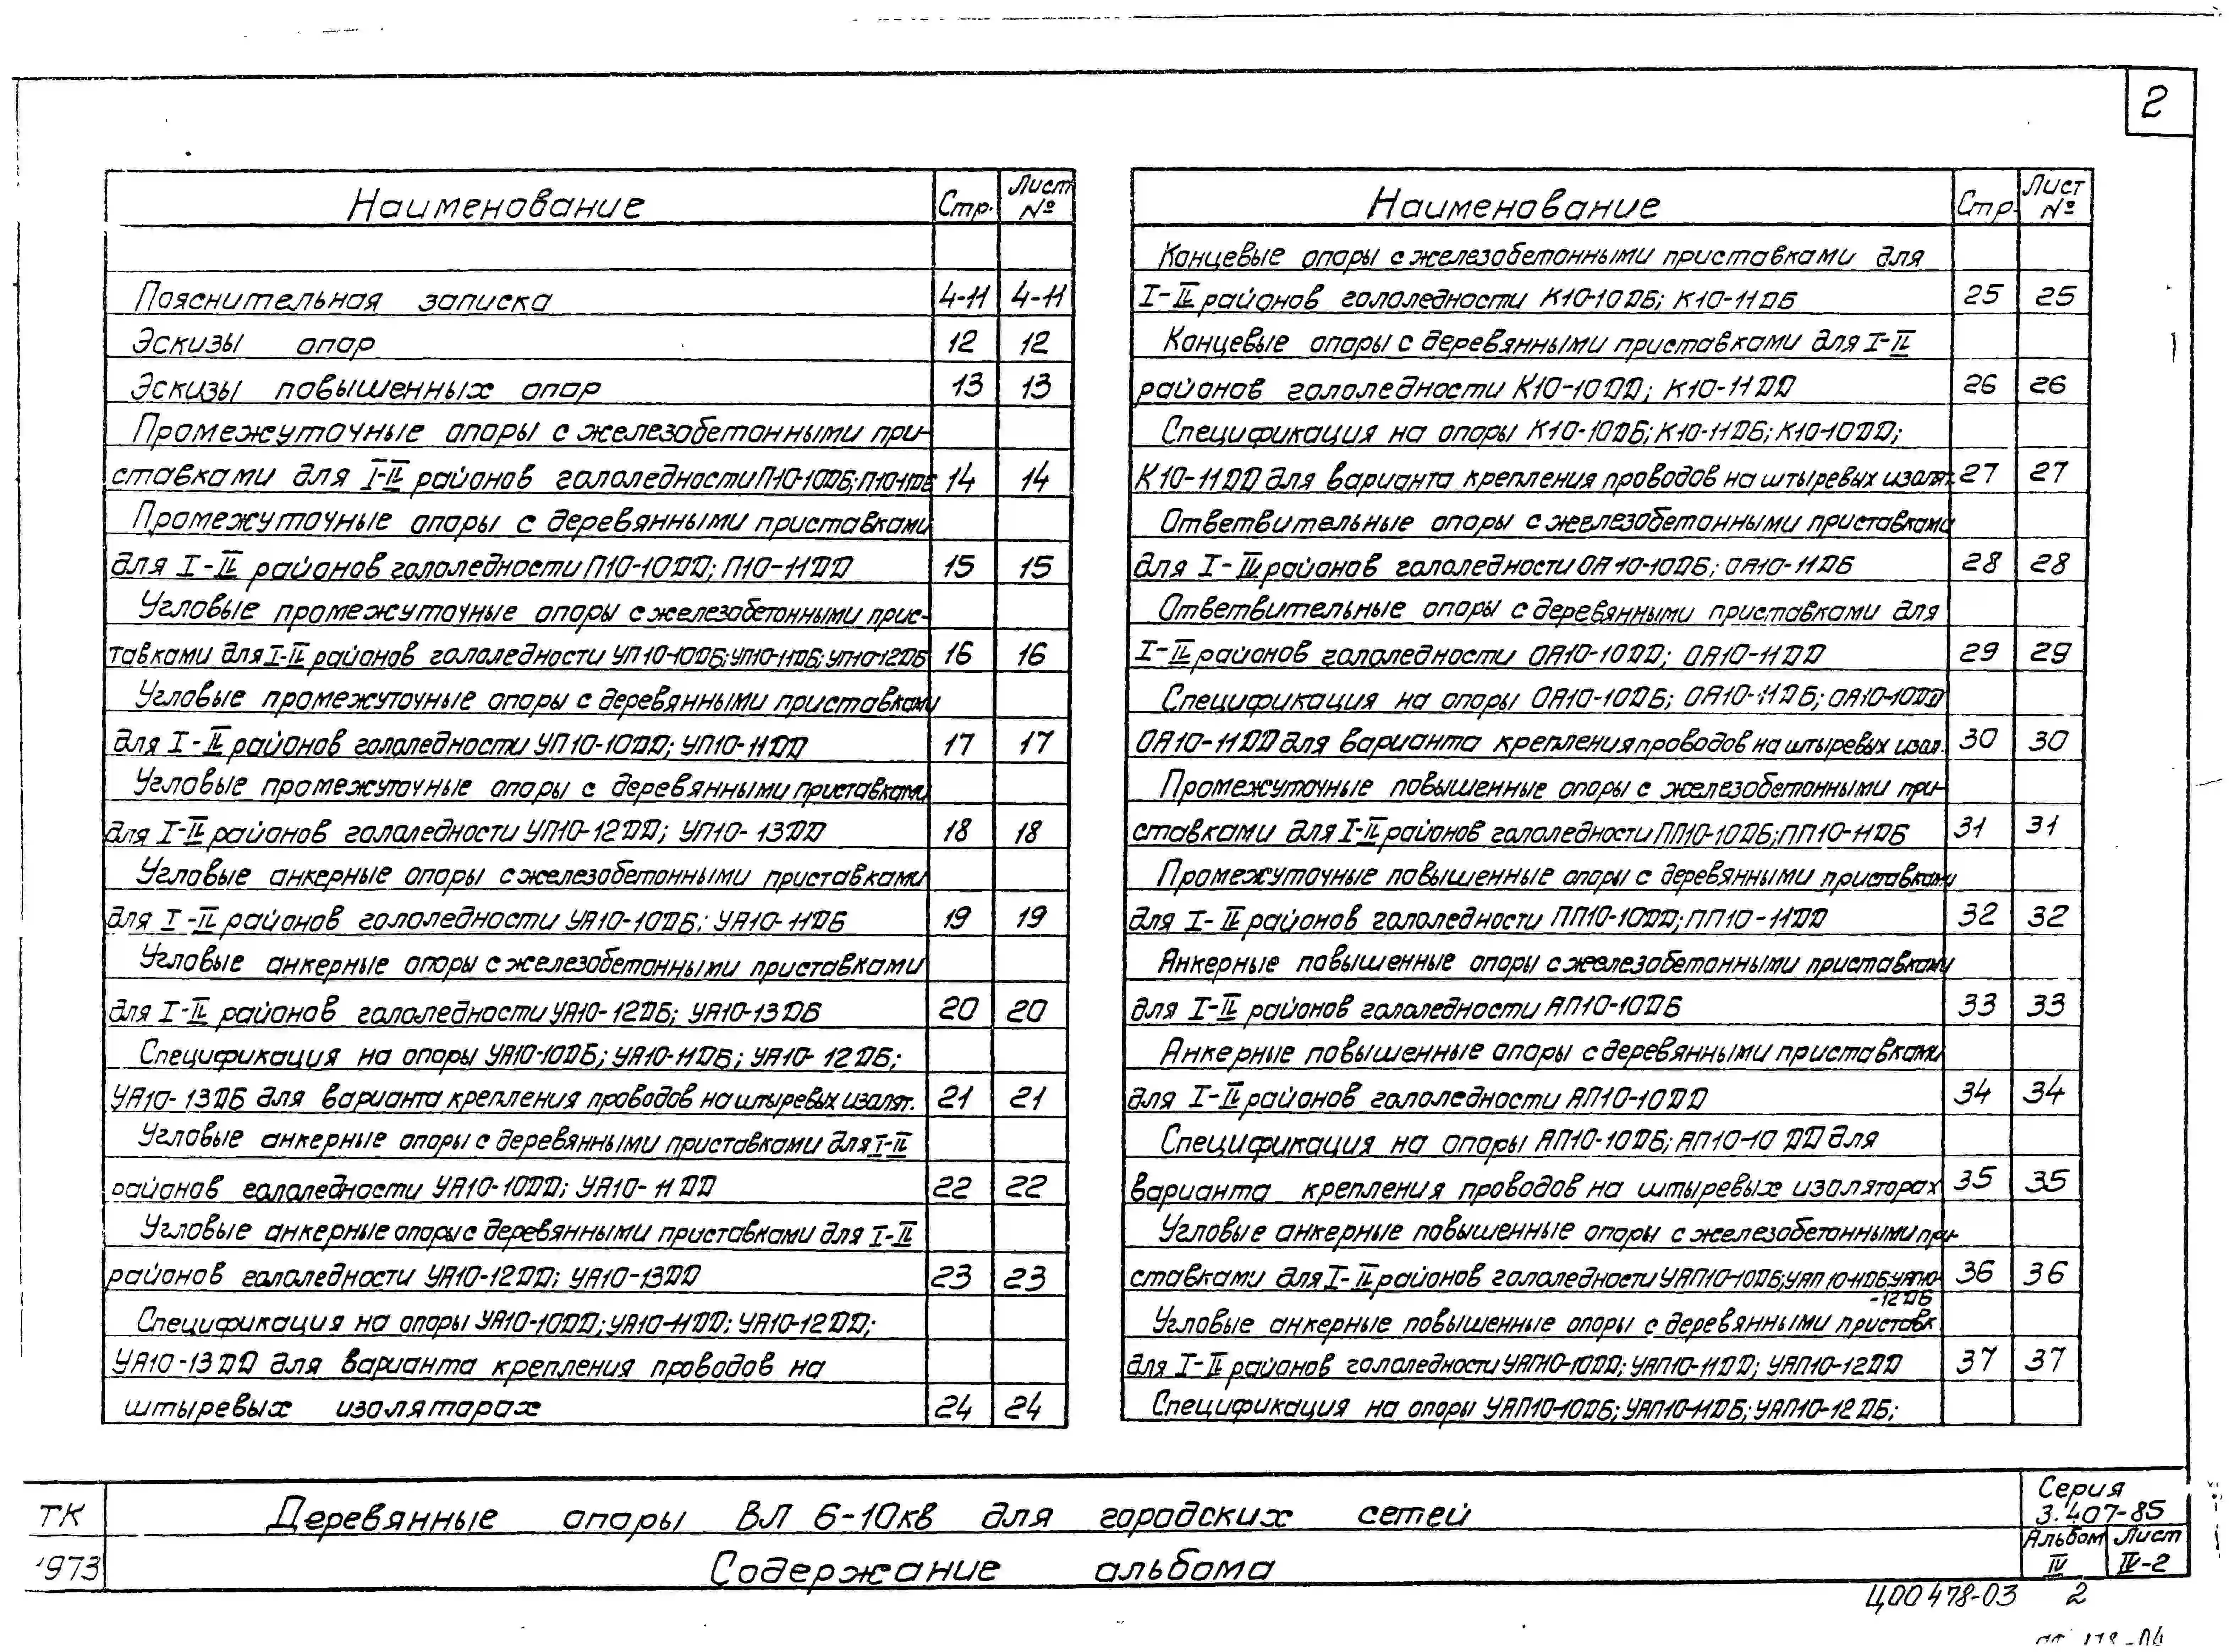 2
Наименование Стр. Лист №
Пояснительная записка 4-11 4-11
Эскизы опор 12 12
Эскизы повышенных опор 13 13
Промежуточные опоры с железобетонными при-
ставками для I-IV районов гололедности П10-10ДБ; П10-11ДБ 14 14
Промежуточные опоры с деревянными приставками
для I-IV районов гололедности П10-10ДД; П10-11ДД 15 15
Угловые промежуточные опоры с железобетонными прис-
тавками для I-IV районов гололедности УП10-10ДБ; УП10-11ДБ; УП10-12ДБ 16 16
Угловые промежуточные опоры с деревянными приставками
для I-IV районов гололедности УП10-10ДД; УП10-11ДД 17 17
Угловые промежуточные опоры с деревянными приставками
для I-IV районов гололедности УП10-12ДД; УП10-13ДД 18 18
Угловые анкерные опоры с железобетонными приставками
для I-IV районов гололедности УА10-10ДБ; УА10-11ДБ 19 19
Угловые анкерные опоры с железобетонными приставками
для I-IV районов гололедности УА10-12ДБ; УА10-13ДБ 20 20
Спецификация на опоры УА10-10ДБ; УА10-11ДБ; УА10-12ДБ;
УА10-13ДБ для варианта крепления проводов на штыревых изолят. 21 21
Угловые анкерные опоры с деревянными приставками для I-IV
районов гололедности УА10-10ДД; УА10-11ДД 22 22
Угловые анкерные опоры с деревянными приставками для I-IV
районов гололедности УА10-12ДД; УА10-13ДД 23 23
Спецификация на опоры УА10-10ДД; УА10-11ДД; УА10-12ДД;
УА10-13ДД для варианта крепления проводов на
штыревых изоляторах 24 24
Наименование Стр. Лист №
Концевые опоры с железобетонными приставками для
I-IV районов гололедности К10-10ДБ; К10-11ДБ 25 25
Концевые опоры с деревянными приставками для I-IV
районов гололедности К10-10ДД; К10-11ДД 26 26
Спецификация на опоры К10-10ДБ; К10-11ДБ; К10-10ДД;
К10-11ДД для варианта крепления проводов на штыревых изолят. 27 27
Ответвительные опоры с железобетонными приставками
для I-IV районов гололедности ОА10-10ДБ; ОА10-11ДБ 28 28
Ответвительные опоры с деревянными приставками для
I-IV районов гололедности ОА10-10ДД; ОА10-11ДД 29 29
Спецификация на опоры ОА10-10ДБ; ОА10-11ДБ; ОА10-10ДД
ОА10-11ДД для варианта крепления проводов на штыревых изол. 30 30
Промежуточные повышенные опоры с железобетонными при-
ставками для I-IV районов гололедности ПП10-10ДБ; ПП10-11ДБ 31 31
Промежуточные повышенные опоры с деревянными приставками
для I-IV районов гололедности ПП10-10ДД; ПП10-11ДД 32 32
Анкерные повышенные опоры с железобетонными приставками
для I-IV районов гололедности АП10-10ДБ 33 33
Анкерные повышенные опоры с деревянными приставками
для I-IV районов гололедности АП10-10ДД 34 34
Спецификация на опоры АП10-10ДБ; АП10-10ДД для
варианта крепления проводов на штыревых изоляторах 35 35
Угловые анкерные повышенные опоры с железобетонными при-
ставками для I-IV районов гололедности УАП10-10ДБ; УАП10-11ДБ; УАП10- 36 36
-12ДБ
Угловые анкерные повышенные опоры с деревянными приставк
для I-IV районов гололедности УАП10-10ДД; УАП10-11ДД; УАП10-12ДД 37 37
Спецификация на опоры УАП10-10ДБ; УАП10-11ДБ; УАП10-12ДБ;
ТК
1973
Деревянные опоры ВЛ 6-10кв для городских сетей
Содержание альбома
Серия
3.407-85
Альбом Лист
IV IV-2
Ц00478-03 2